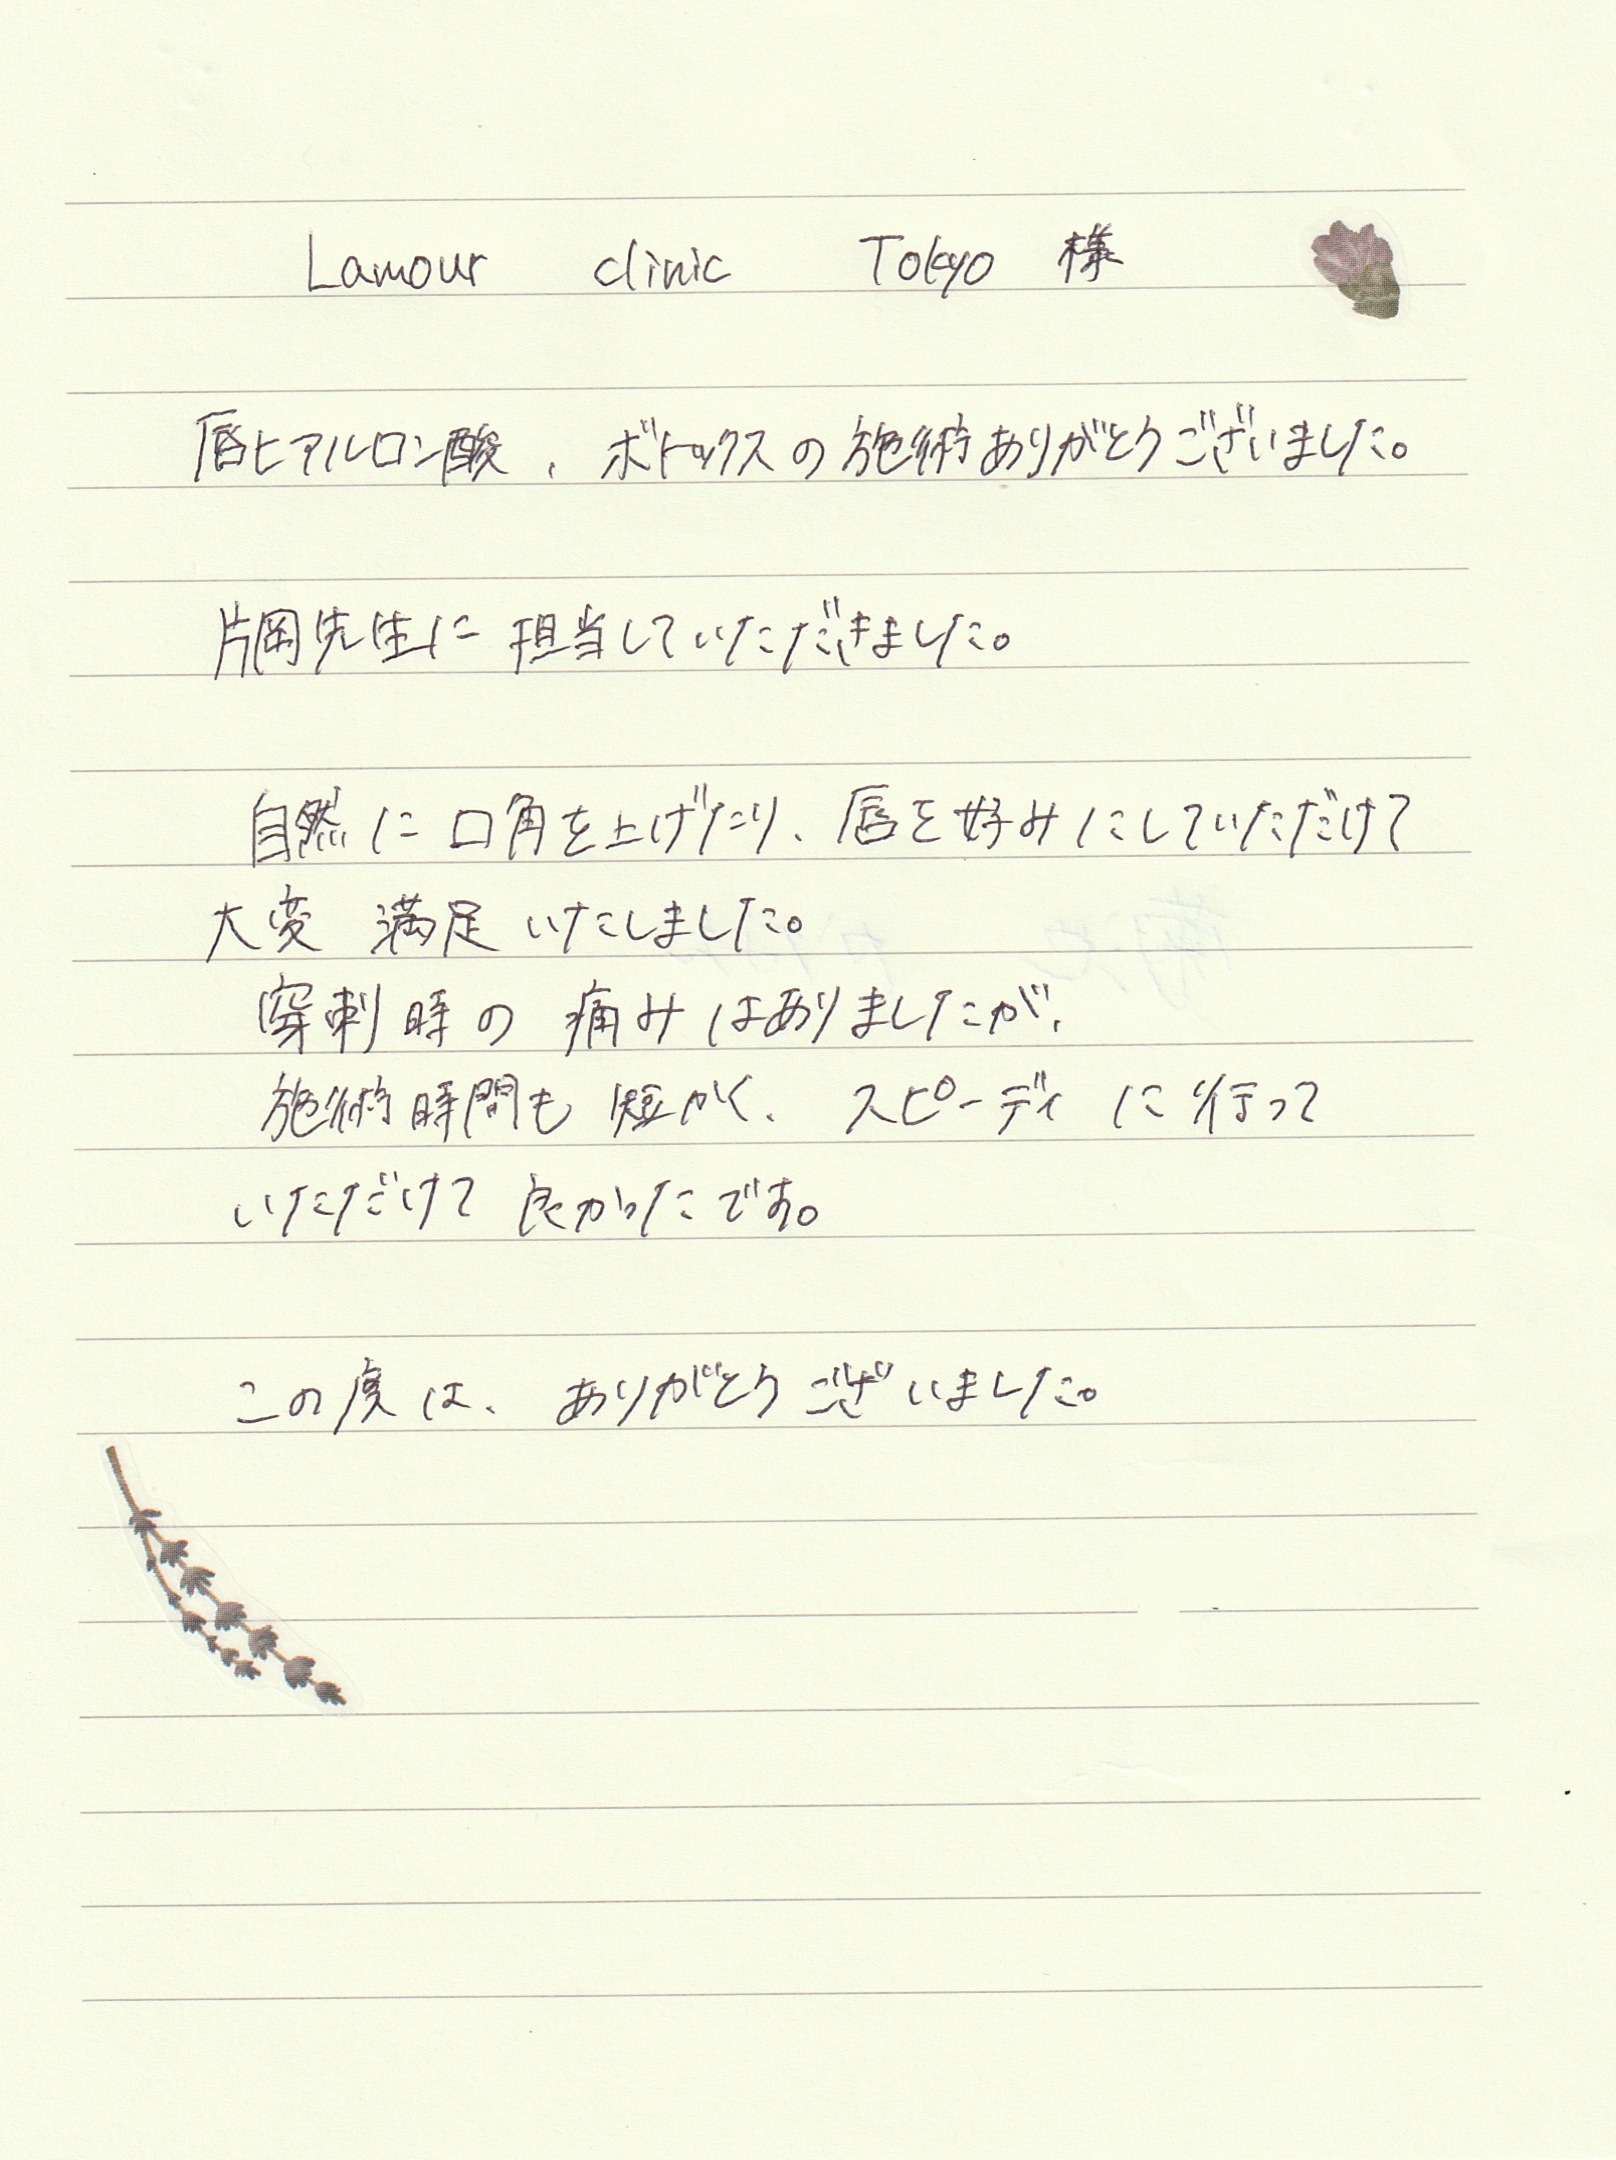 Lamour clinic Tokyo 様
唇ヒアルロン酸、ボトックスの施術ありがとうございました。
片岡先生に担当していただきました。
自然に口角を上げたり、唇を好みにしていただけて
大変満足いたしました。
穿刺時の痛みはありましたが、
施術時間も短かく、スピーディに行って
いただけて良かったです。
この度は、ありがとうございました。